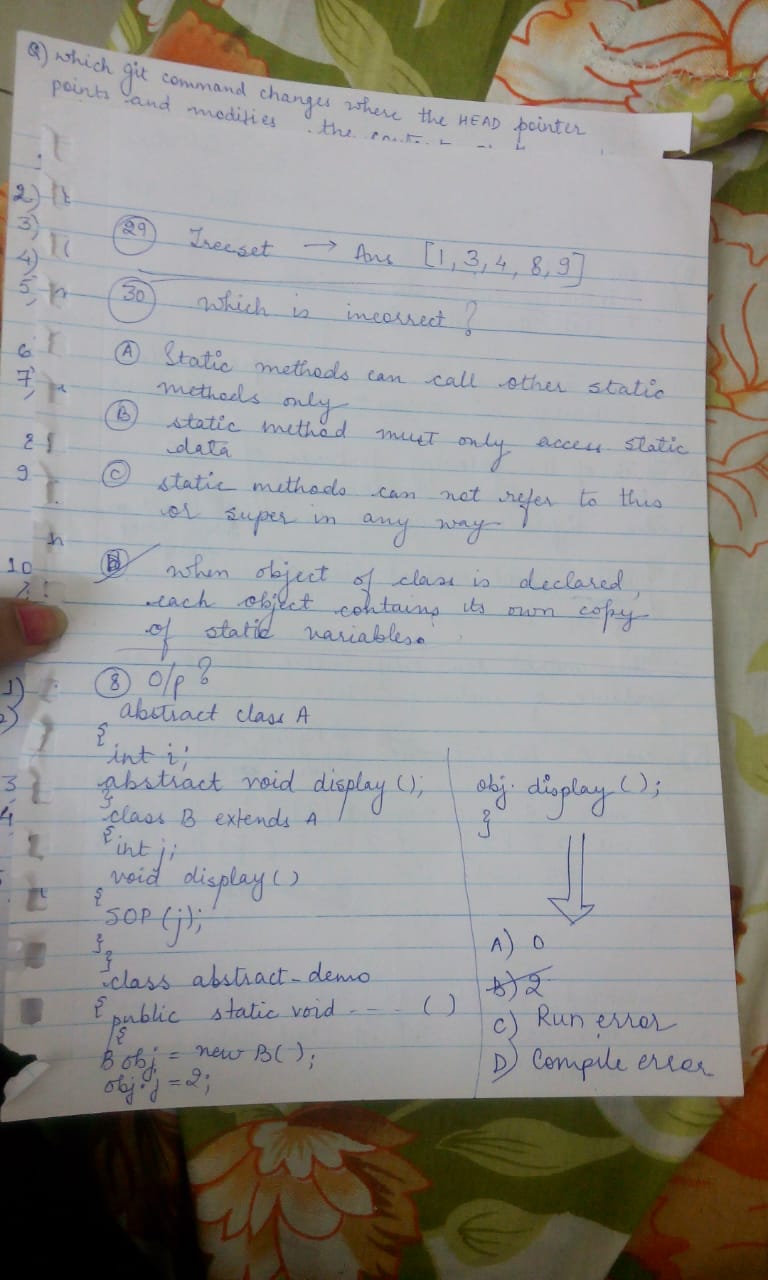 Q) which git command changes where the HEAD pointer
points and modifies the
2)
3)
4)
5)
6
7
8
9
10
29 Treeset → Ans [1, 3, 4, 8, 9]
30 which is incorrect?
A Static methods can call other static
methods only
B static method must only access static
data
C static methods can not refer to this
or super in any way
D when object of class is declared,
each object contains its own copy
of static variables.
1)
2)
3
4
8 O/p?
abstract class A
{
int i;
abstract void display ();
}
class B extends A
{
int j;
void display ()
{
SOP (j);
}
}
class abstract-demo
{
public static void ---- ( )
{
B obj = new B();
obj.j = 2;
obj. display ();
}
A) 0
B) 2
C) Run error
D) Compile error